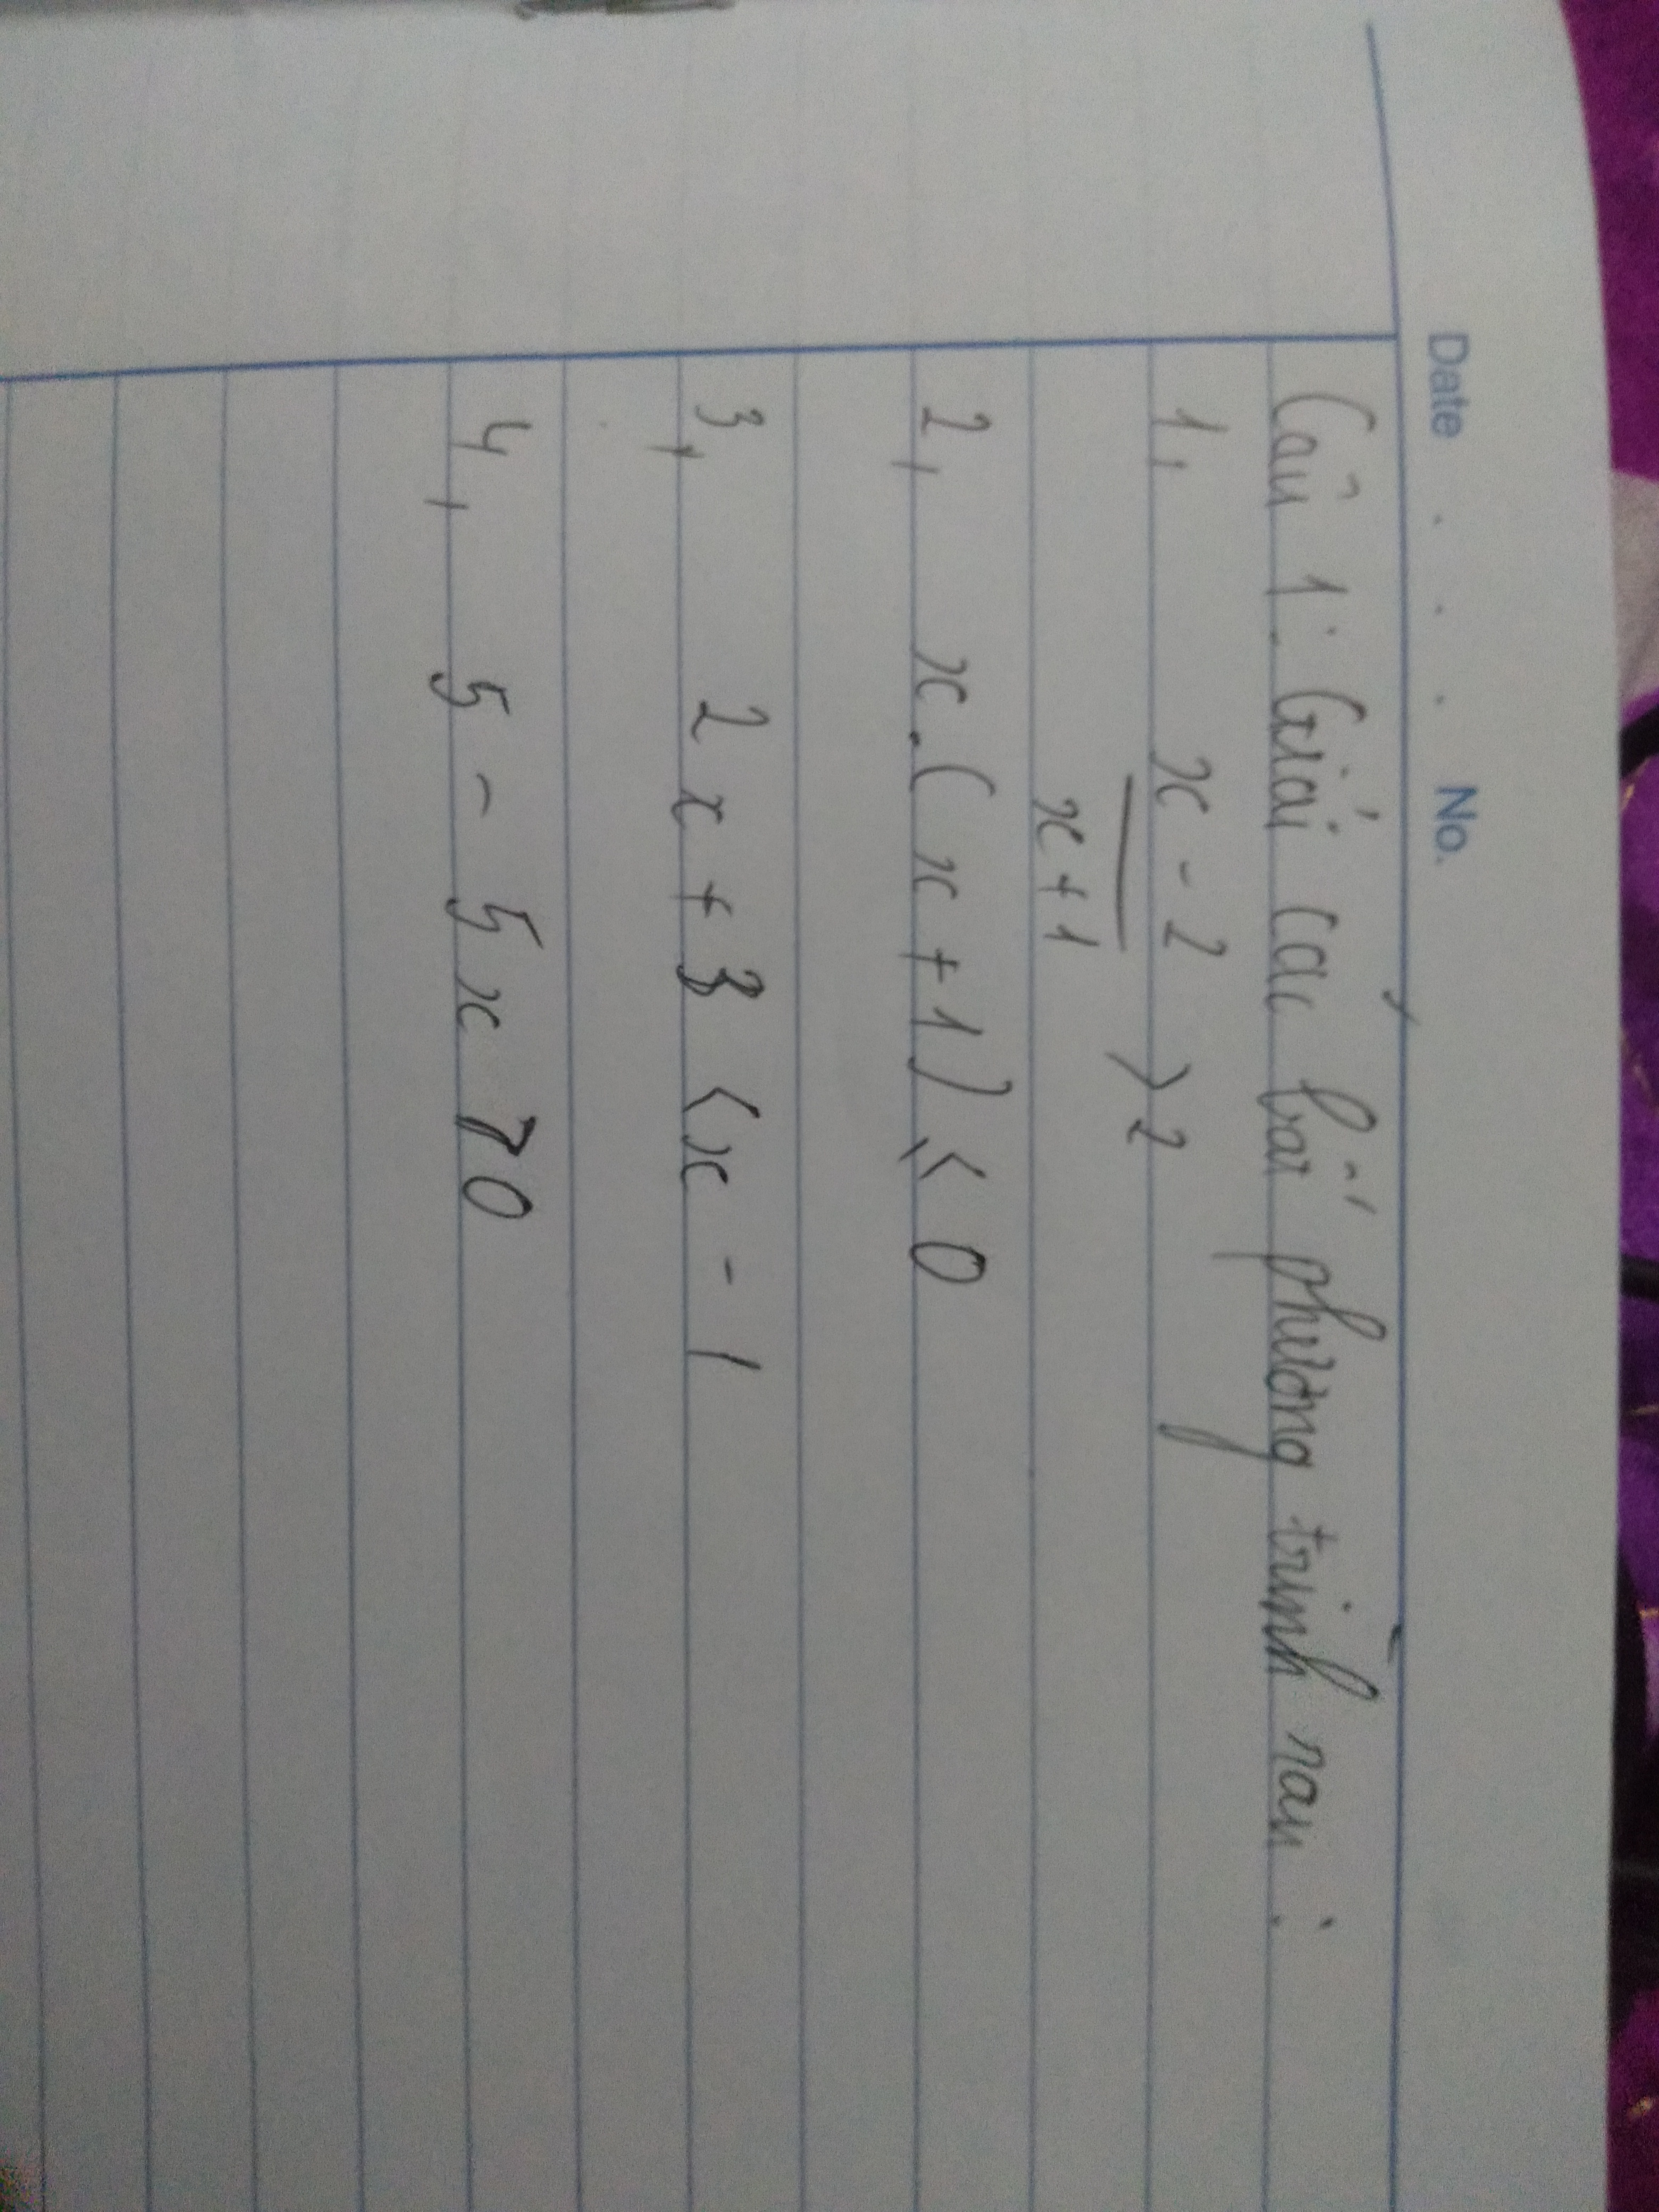 Date . . . No.
Câu 1: Giải các bất phương trình sau:
1, x - 2 / x + 1 > 2
2, x.(x+1) ≤ 0
3, 2x + 3 < x - 1
4, 5 - 5x > 0